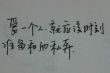 爱一个人，就应该时刻
准备和他私奔。